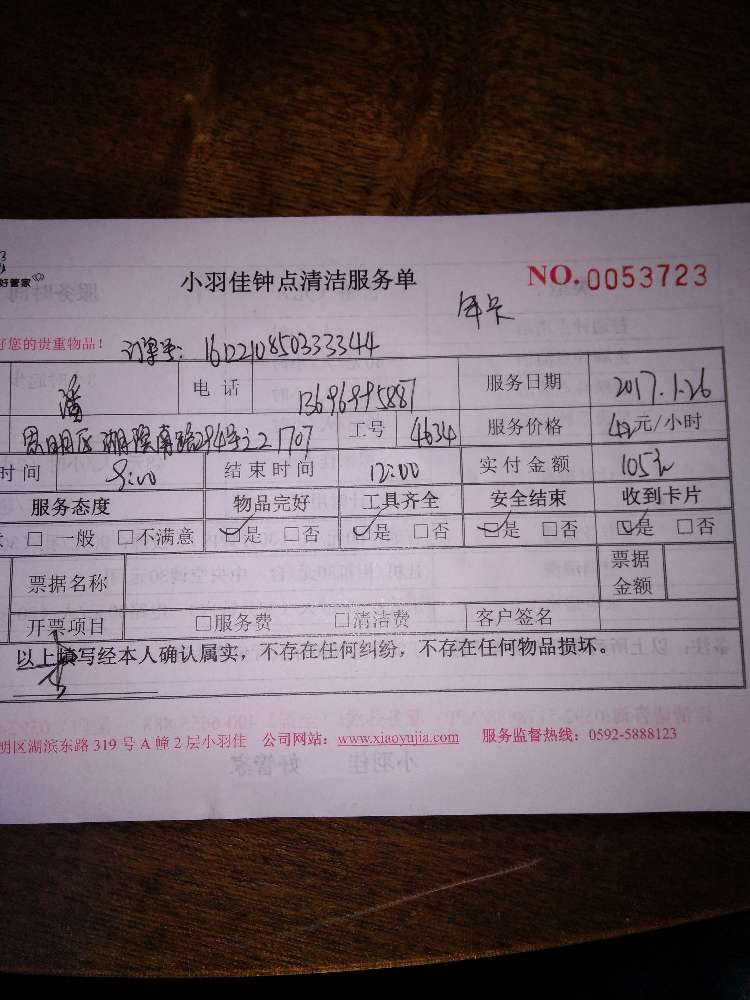 好管家
小羽佳钟点清洁服务单 NO.0053723
年卡
好您的贵重物品! 订单号: 161221085033344
潘 电话 13696995887 服务日期 2017.1.26
思明区湖滨南路294号之二1707 工号 4634 服务价格 42元/小时
时间 8:00 结束时间 12:00 实付金额 105元
服务态度 物品完好 工具齐全 安全结束 收到卡片
□一般 □不满意 ☑是 □否 ☑是 □否 ☑是 □否 ☑是 □否
票据名称 票据金额
开票项目 □服务费 □清洁费 客户签名
以上填写经本人确认属实，不存在任何纠纷，不存在任何物品损坏。
明区湖滨东路 319 号 A 幢 2 层小羽佳 公司网站：www.xiaoyujia.com 服务监督热线：0592-5888123